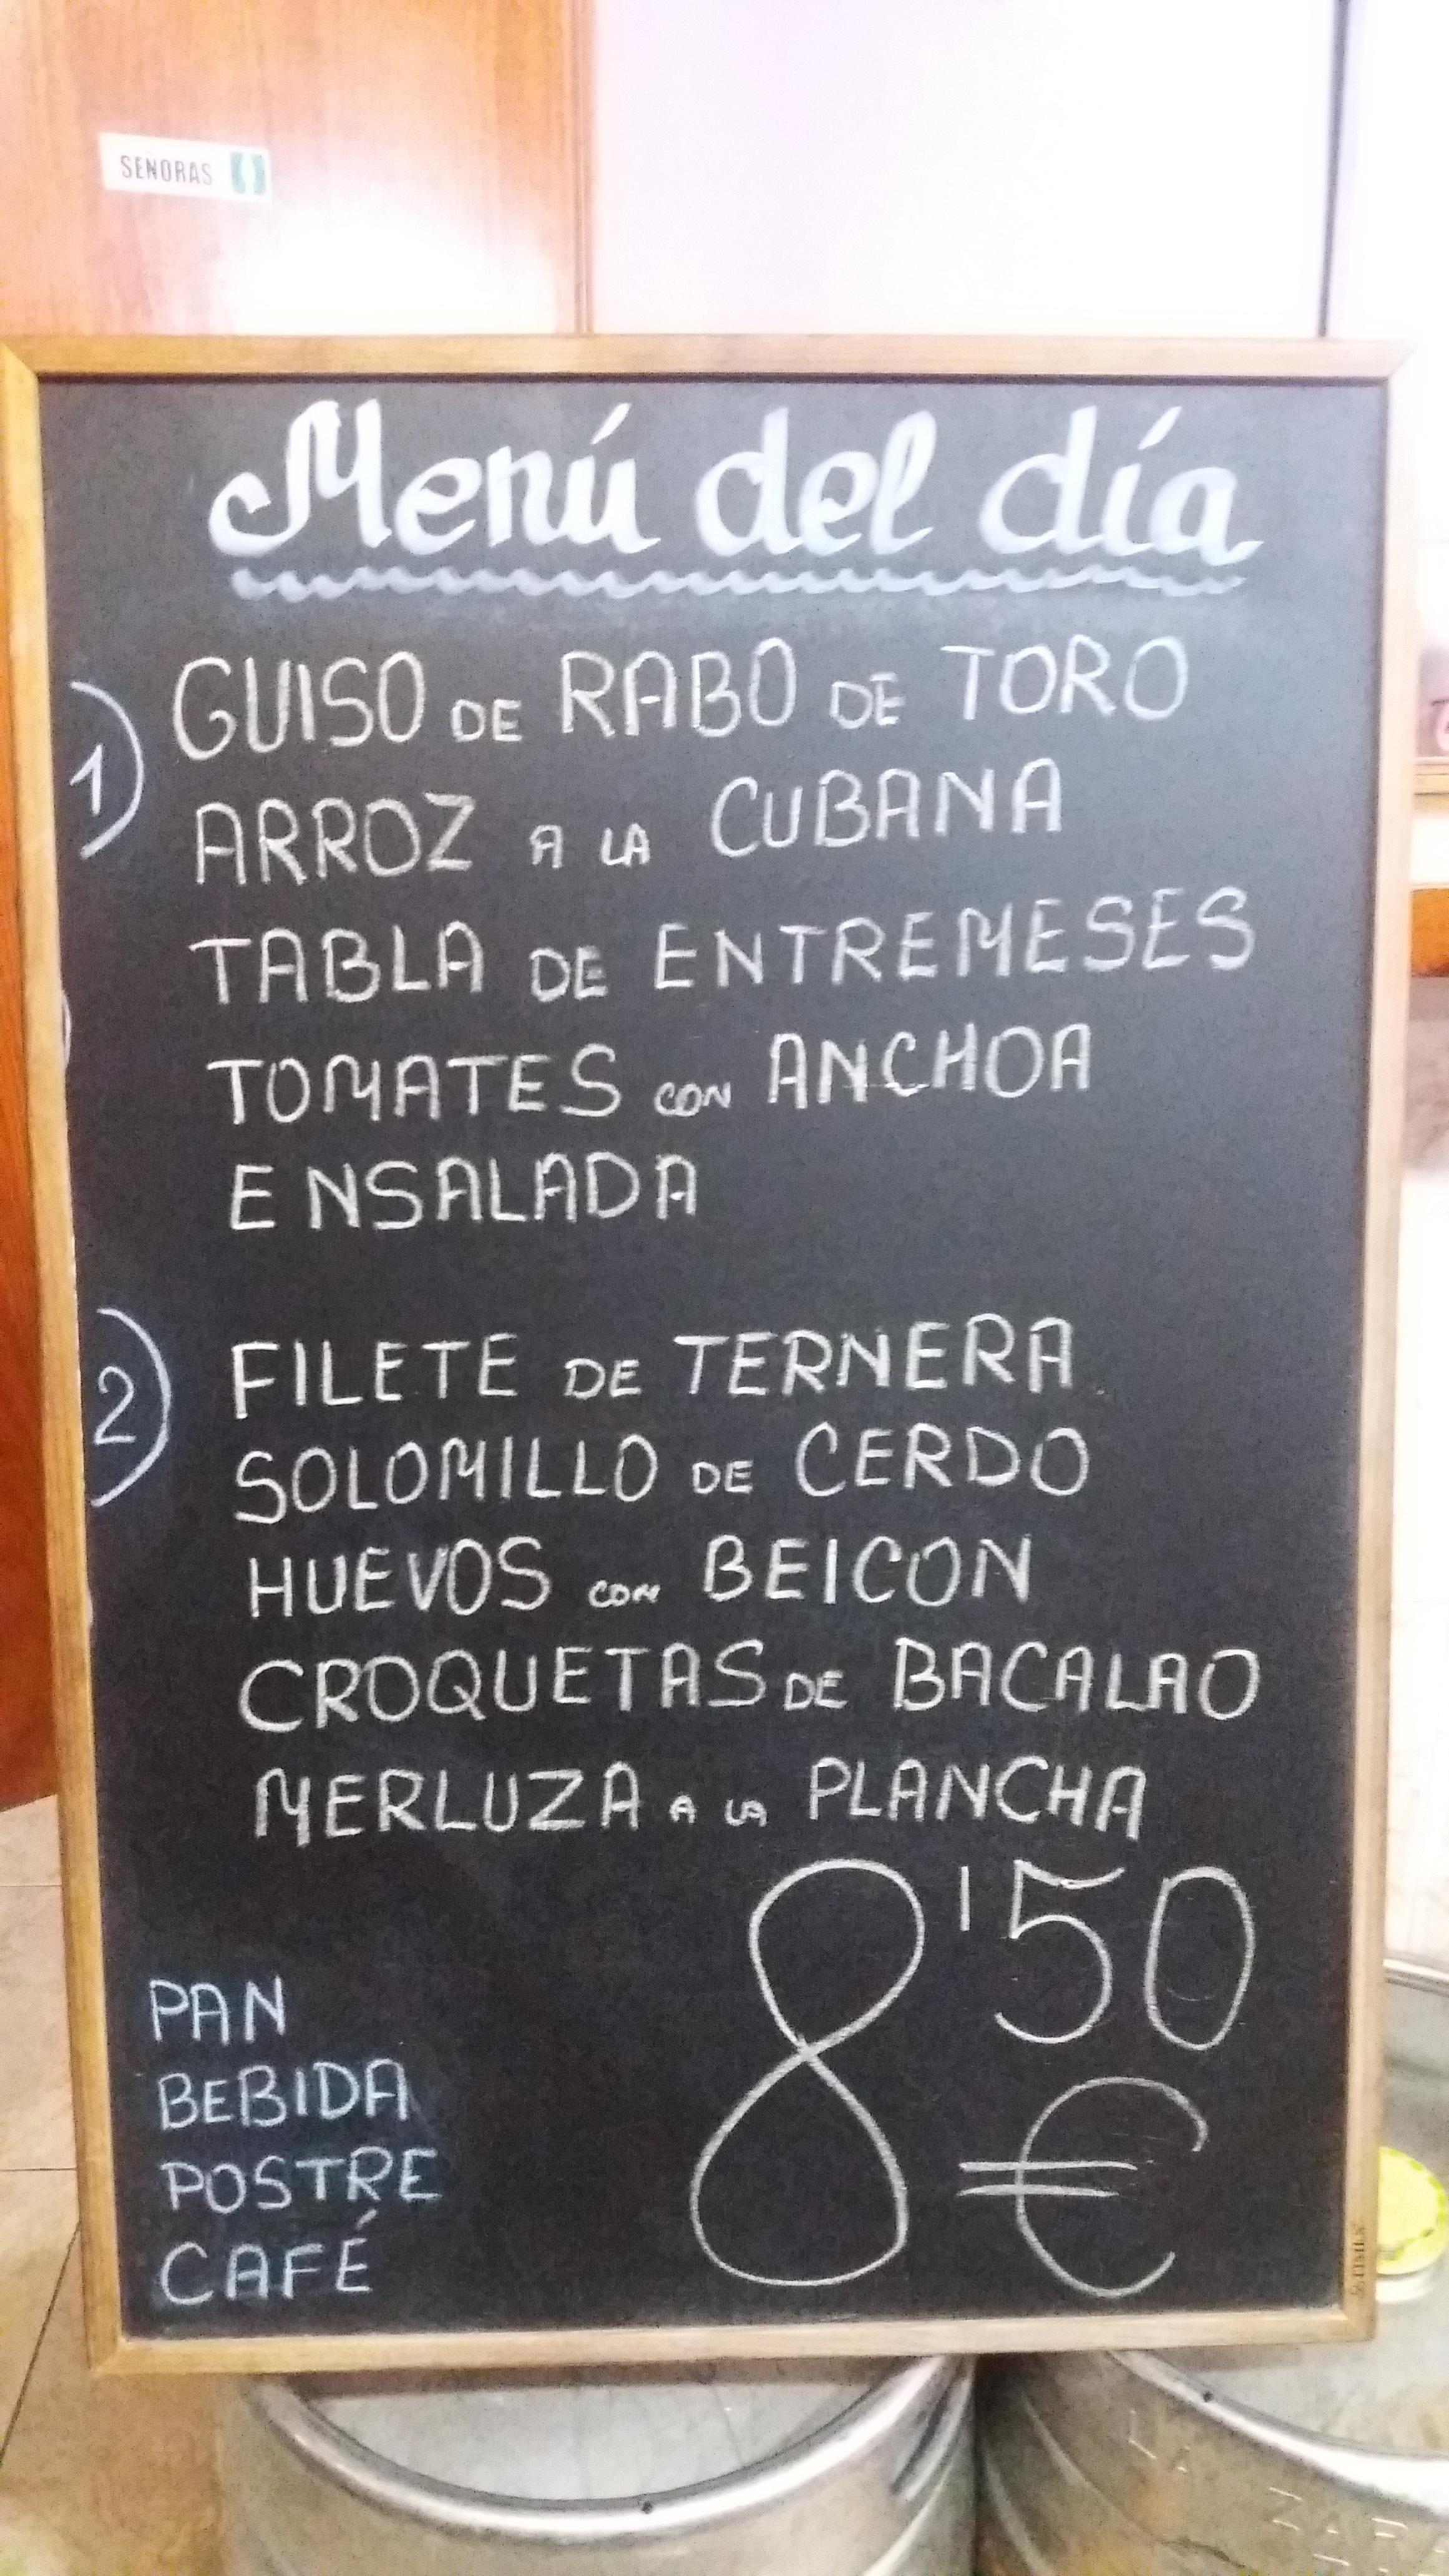 SEÑORAS
Menú del día
1) GUISO DE RABO DE TORO
ARROZ A LA CUBANA
TABLA DE ENTREMESES
TOMATES CON ANCHOA
ENSALADA
2) FILETE DE TERNERA
SOLOMILLO DE CERDO
HUEVOS CON BEICON
CROQUETAS DE BACALAO
MERLUZA A LA PLANCHA
8'50
€
PAN
BEBIDA
POSTRE
CAFÉ
LA